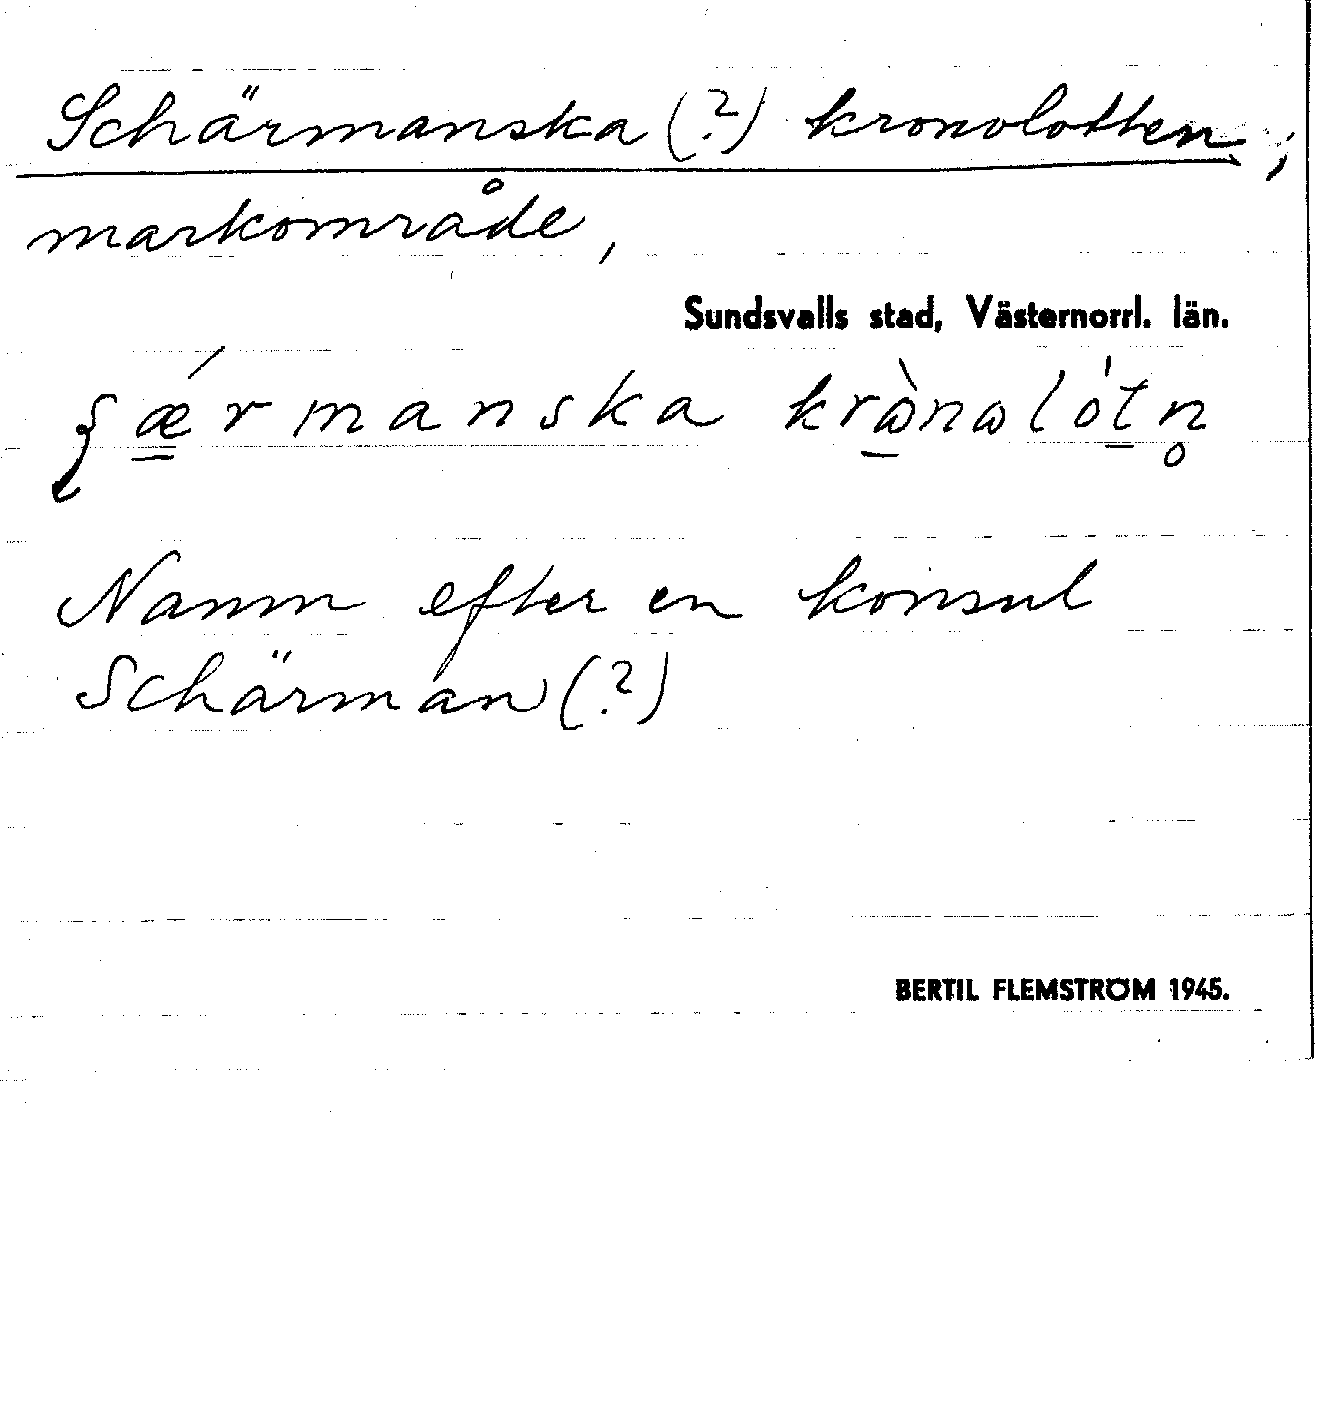 Schärmanska (?) kronolotten;
markområde,
Sundsvalls stad, Västernorrl. län.
ʃǽrmanska krὼnωlótn̥
Namn efter en konsul
Schärman (?)
BERTIL FLEMSTRÖM 1945.